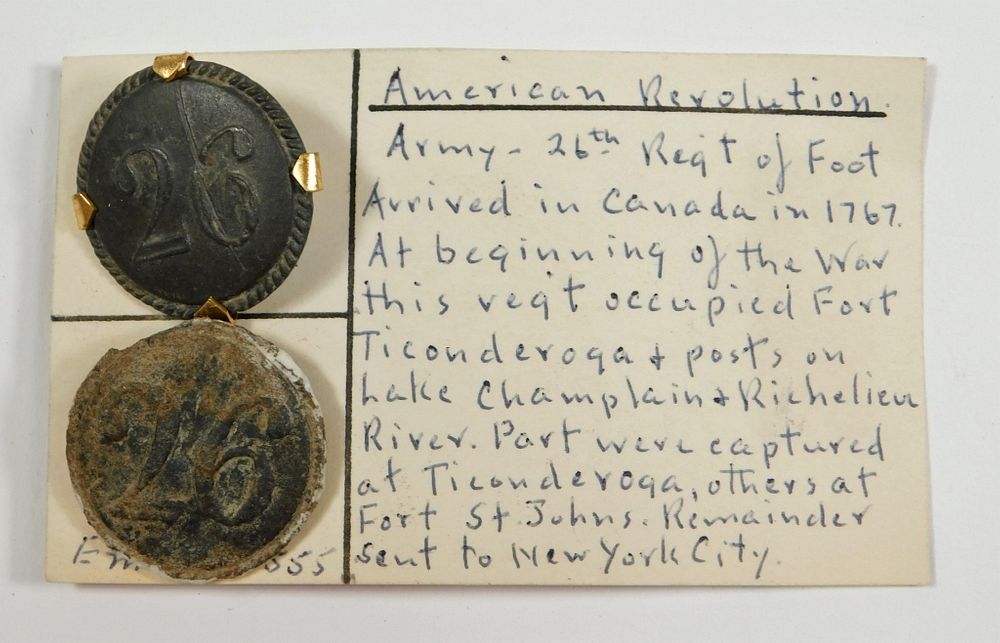 26
26
555
American Revolution.
Army - 26th Regt of Foot
Arrived in Canada in 1767.
At beginning of the War
this regt occupied Fort
Ticonderoga + posts on
Lake Champlain + Richelieu
River. Part were captured
at Ticonderoga, others at
Fort St Johns. Remainder
sent to New York City.